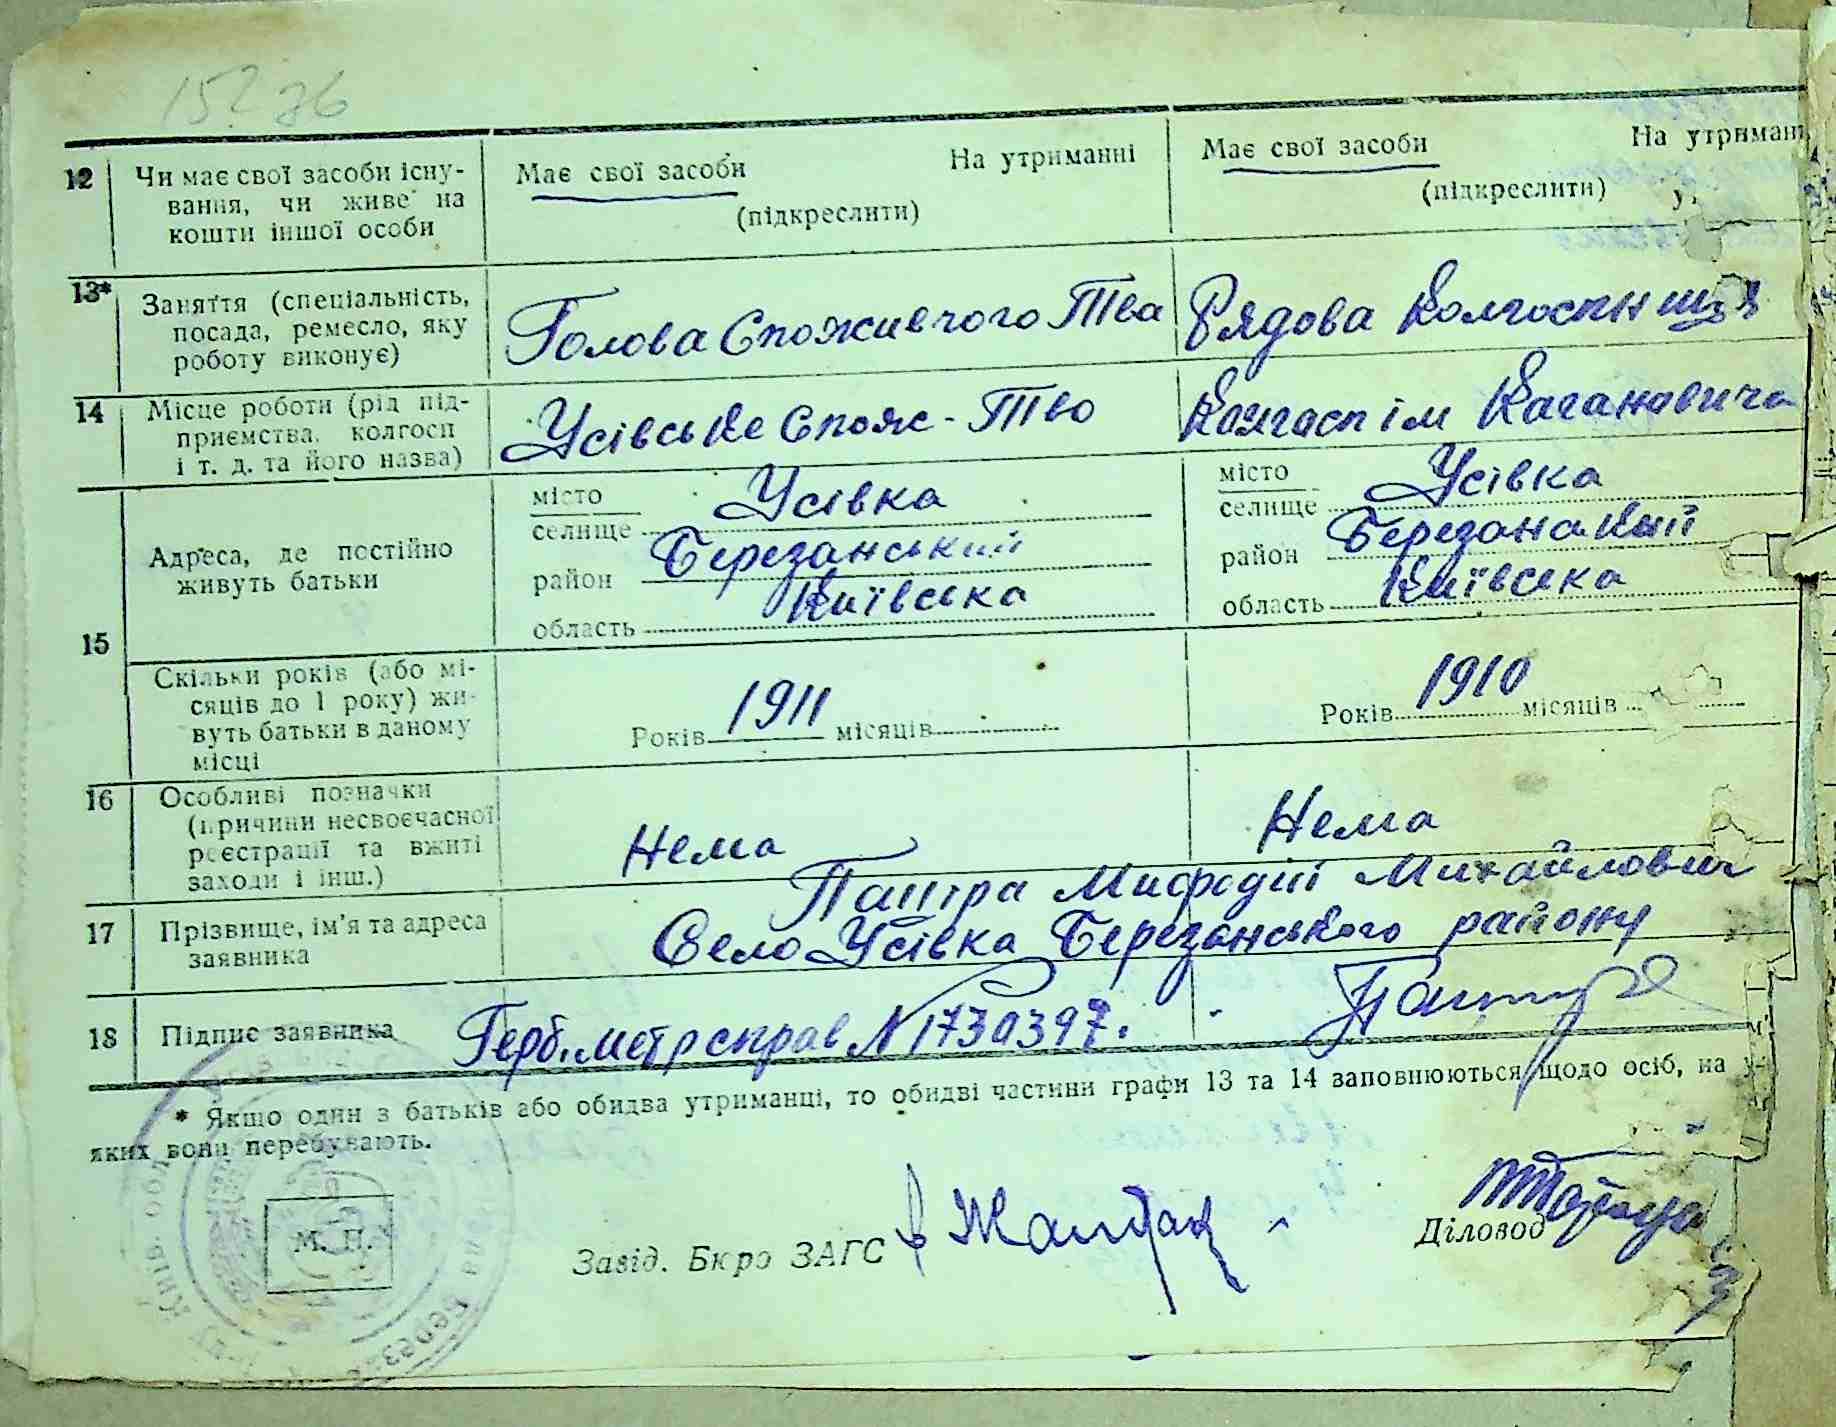 12 Чи має свої засоби існу-
вання, чи живе на
кошти іншої особи
Має свої засоби На утриманні
(підкреслити)
Має свої засоби На утриманн
(підкреслити)
13* Заняття (спеціальність,
посада, ремесло, яку
роботу виконує)
Голова Споживчого Тва
Рядова Колгоспниця
14 Місце роботи (рід під-
приємства, колгосп
і т. д. та його назва)
Усівське Спож-Тво
Колгосп ім Кагановича
15 Адреса, де постійно
живуть батьки
місто
селище Усівка
район Березанський
область Київська
місто
селище Усівка
район Березанский
область Київска
Скільки років (або мі-
сяців до 1 року) жи-
вуть батьки в даному
місці
Років 1911 місяців
Років 1910 місяців
16 Особливі позначки
(причини несвоєчасної
реєстрації та вжиті
заходи і інш.)
Нема
Нема
17 Прізвище, ім'я та адреса
заявника
Мифодій Михайлович
Село Усівка Березанського району
18 Підпис заявника
Герб. метр справ N 1730397.
* Якщо один з батьків або обидва утриманці, то обидві частини графи 13 та 14 заповнюються щодо осіб, на у-
яких вони перебувають.
М. П.
Завід. Бюро ЗАГС
Діловод